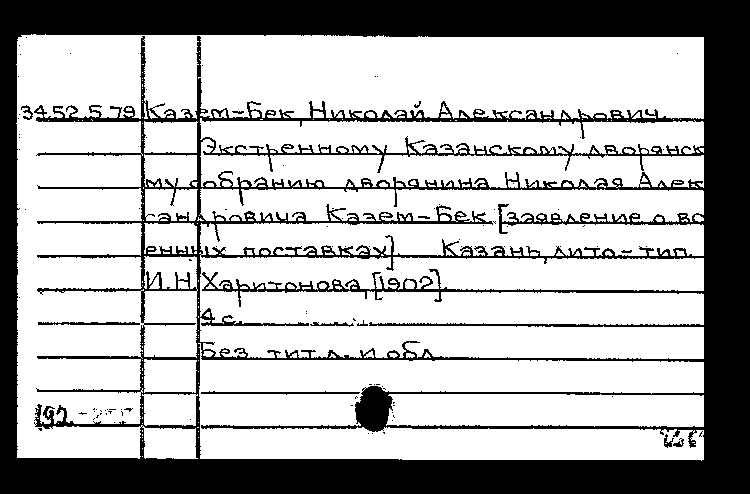 34.52.5.79 Казем-Бек, Николай Александрович.
Экстренному Казанскому дворянск
му собранию дворянина Николая Алек
сандровича Казем-Бек [заявление о во
енных поставках]. Казань, лито-тип.
И.Н. Харитонова, [1902].
4 с.
Без тит. л. и обл.